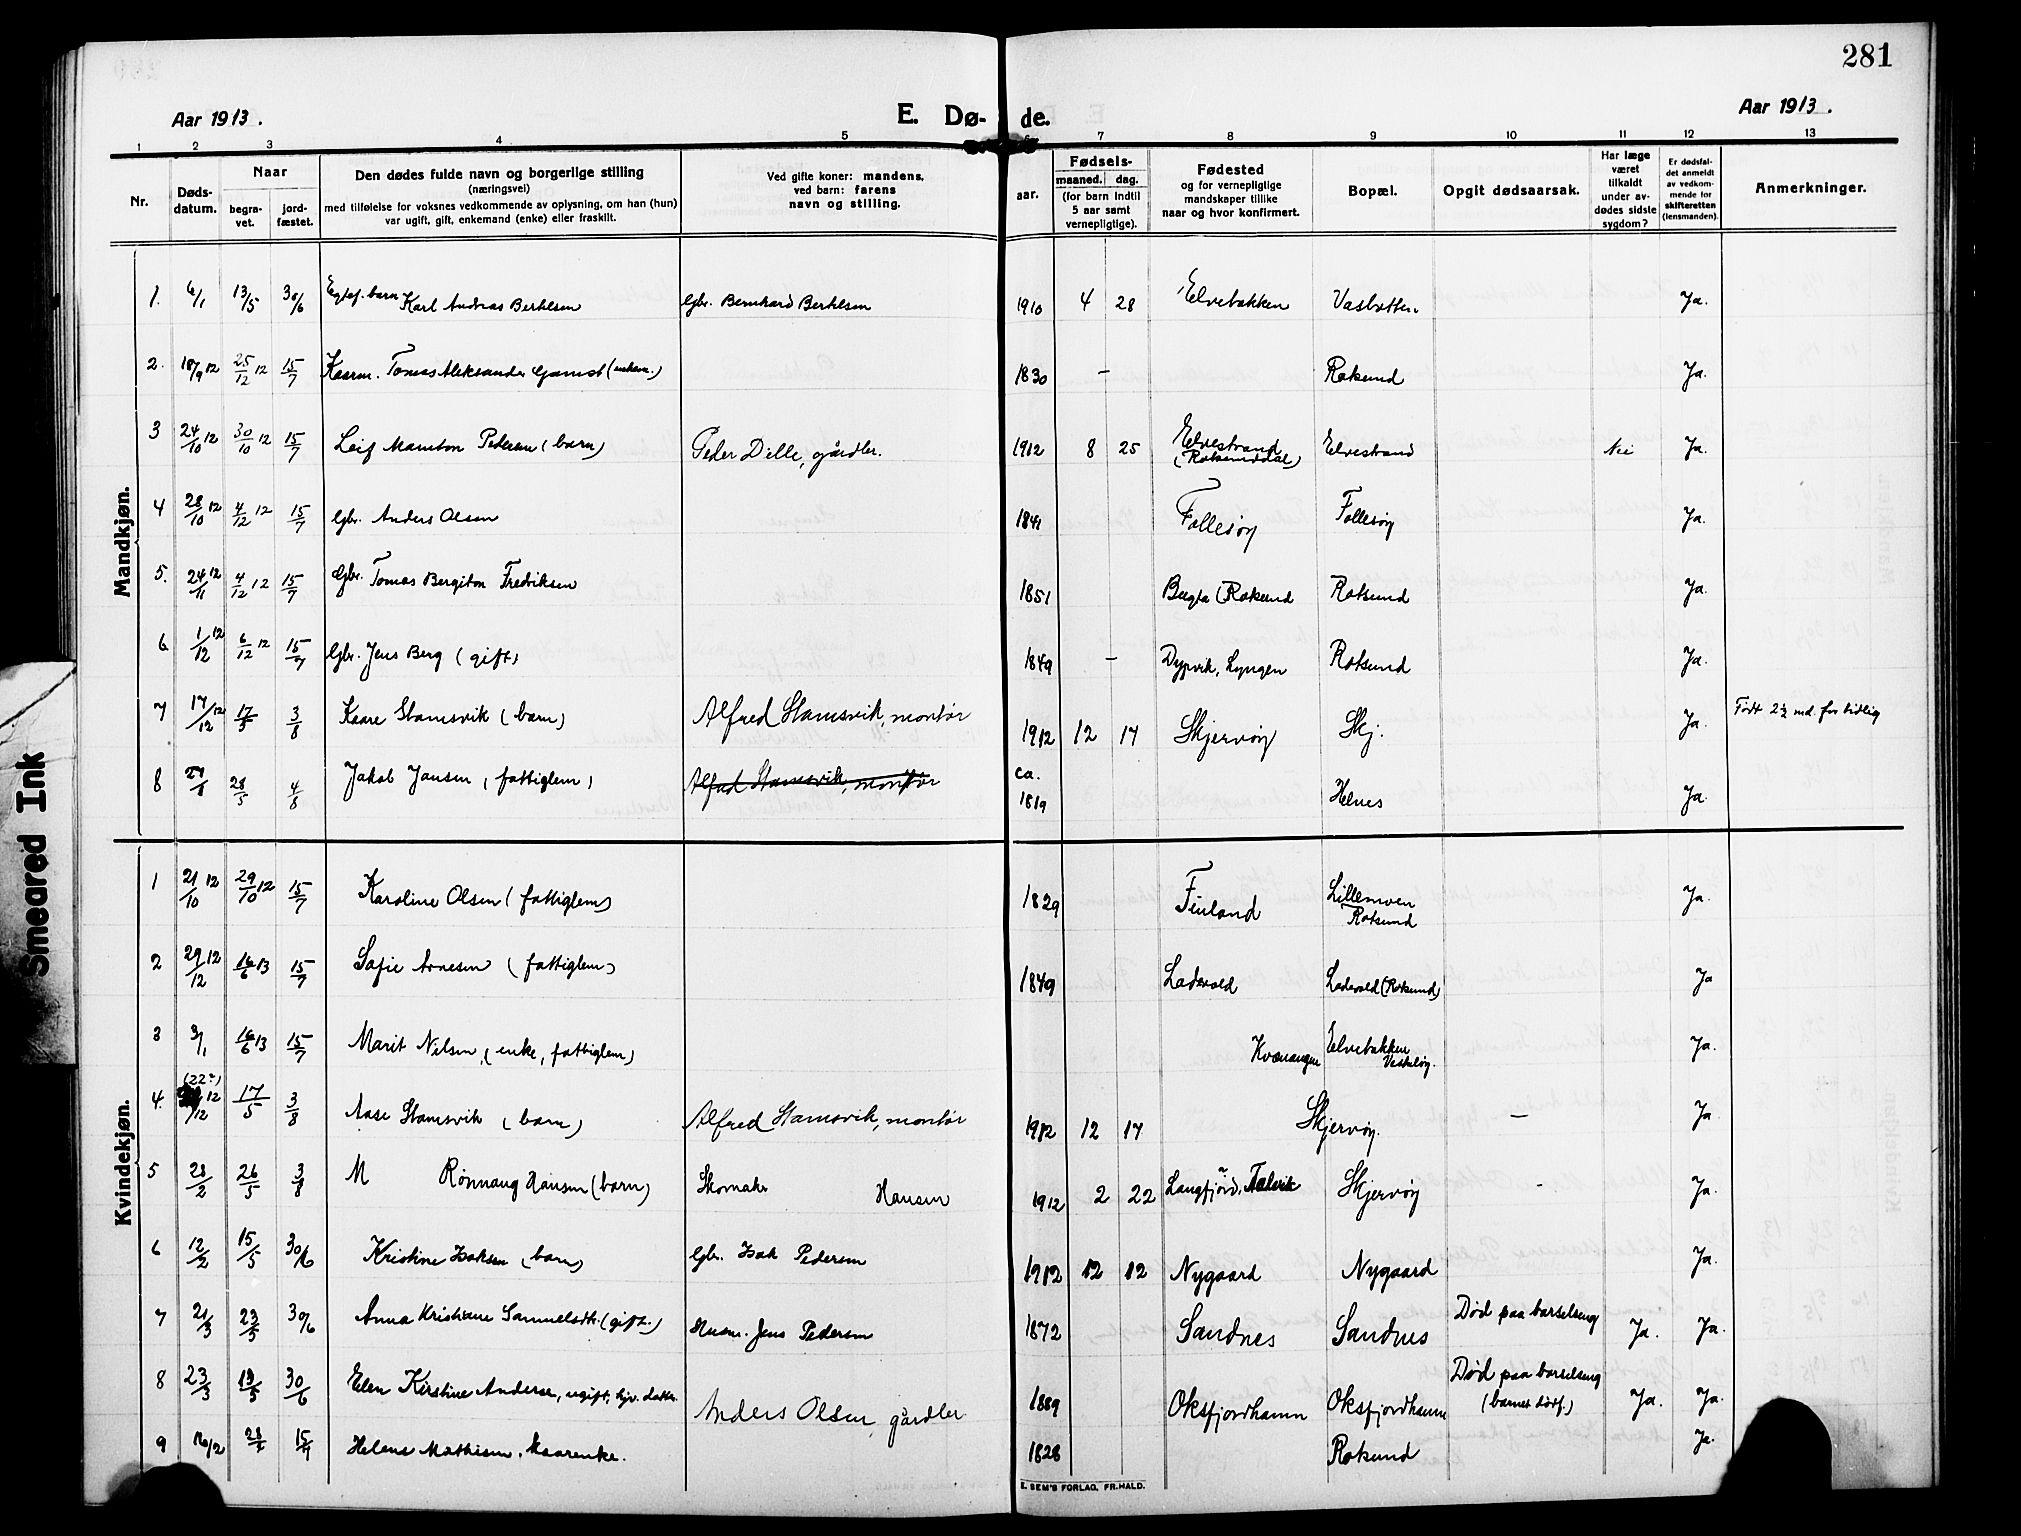 281
Aar 1913.
E. Dø- de.
Aar 1913.
1 2 3 4 5 7 8 9 10 11 12 13
Nr.
Døds-
datum.
Naar
begra-
vet.
jord-
fæstet.
Den dødes fulde navn og borgerlige stilling
(næringsvei)
med tilføielse for voksnes vedkommende av oplysning, om han (hun)
var ugift, gift, enkemand (enke) eller fraskilt.
Ved gifte koner: mandens,
ved barn: farens
navn og stilling.
aar.
Fødsels-
maaned. dag.
(for barn indtil
5 aar samt
vernepligtige).
Fødested
og for vernepligtige
mandskaper tillike
naar og hvor konfirmert.
Bopæl.
Opgit dødsaarsak.
Har læge
været
tilkaldt
under av-
dødes sidste
sygdom?
Er dødsfal-
det anmeldt
av vedkom-
mende for
skifteretten
(lensmanden).
Anmerkninger.
Mandkjøn.
1. 6/1 13/5 30/6 Egtef. barn Karl Andreas Berthlsen Gbr. Bernhard Berthlsen 1910 4 28 Elvebakken Vasbotten Ja.
2. 18/9 12 25/12 12 15/7 Kaarm. Tomas Aleksander Gamst (enkem.) 1830 — Rotsund Ja.
3 24/10 12 30/10 12 15/7 Leif Pedersen (barn) Peder Dille, gårdbr. 1912 8 25 Elvestrand (Rotsunddal) Elvestrand Nei Ja.
4 28/10 12 4/12 12 15/7 Gbr. Anders Olsen 1841 Follesøy Follesøy Ja.
5. 24/11 12 4/12 12 15/7 Gbr. Tomas Bergiton Fredriksen 1851 Bugta (Rotsund Rotsund Ja.
6 1/12 12 6/12 12 15/7 Gbr. Jens Berg (gift) 1849 — Dypvik, Lyngen Rotsund Ja.
7 17/12 12 17/5 3/8 Kaare Stamsvik (barn) Alfred Stamsvik, montør 1912 12 17 Skjervøy Skj. Ja. Født 2½ md. for tidlig
8 28/5 4/8 Jakob Jansen (fattiglem) Alfred Stamsvik, montør ca. 1819 Helnes Ja.
Kvindekjøn.
1 21/10 12 29/10 12 15/7 Karoline Olsen (fattiglem) 1829 Finland Lillemoen Rotsund Ja.
2 29/12 12 16/6 13 15/7 Sofie Arnesen (fattiglem) 1849 Ladevold Ladevold (Rotsund) Ja
3 9/1 16/6 13 15/7 Marit Nilsen, (enke, fattiglem) Kvænangen Elvebakken Ja.
4. (22?) 12/12 17/5 3/8 Aase Stamsvik (barn) Alfred Stamsvik, montør 1912 12 17 Skjervøy. — Ja.
5 28/2 26/5 3/8 M Rønnaug Hansen (barn) Skomaker Hansen 1912 2 22 Langfjord, Talvik Skjervøy - Ja.
6 12/2 15/5 30/6 Kristine Isaksen (barn) Gbr. Isak Pedersen 1912 12 12 Nygaard Nygaard Ja.
7 21/3 23/5 30/6 Anna Kristiane Samuelsdtr. (gift.) Husm. Jens Pedersen 1872 Sandnes Sandnes Død paa barselseng Ja. Ja.
8 23/3 19/5 30/6 Elen Kirstine Anderse, ugift, hjv. datter Anders Olsen, gårdbr 1889 Oksfjordhamn Oksfjordhamn Død paa barselseng (barnet dødf.) Ja. Ja.
9 16/2 15/7 Helena Mathisen, kaarenke. 1828 Rotsund Ja.
E. SEM'S FORLAG, FR.HALD.
Smeared Ink